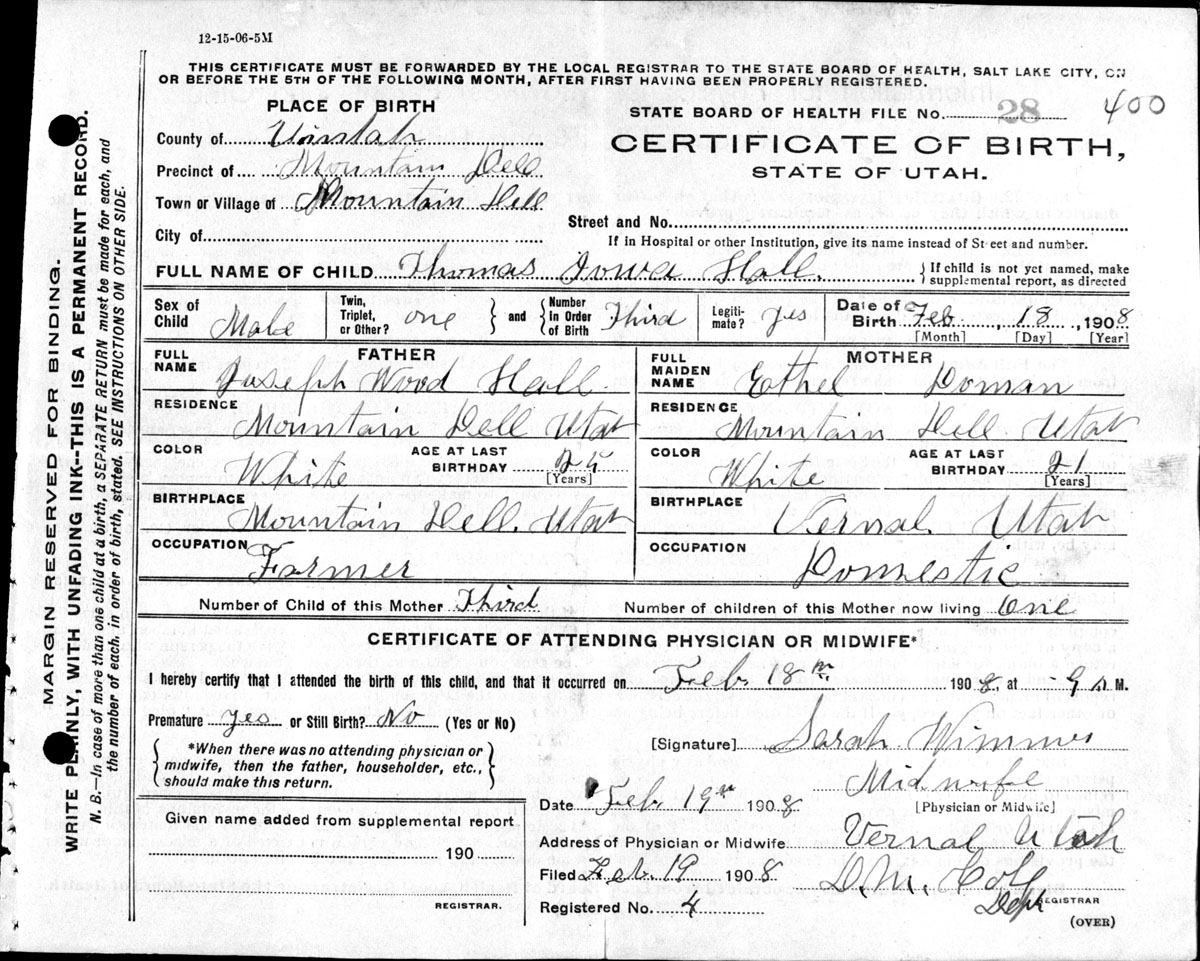 12-15-06-5M
THIS CERTIFICATE MUST BE FORWARDED BY THE LOCAL REGISTRAR TO THE STATE BOARD OF HEALTH, SALT LAKE CITY, ON
OR BEFORE THE 5TH OF THE FOLLOWING MONTH, AFTER FIRST HAVING BEEN PROPERLY REGISTERED.
MARGIN RESERVED FOR BINDING.
WRITE PLAINLY, WITH UNFADING INK--THIS IS A PERMANENT RECORD.
N. B.—In case of more than one child at a birth, a SEPARATE RETURN must be made for each, and
the number of each, in order of birth, stated. SEE INSTRUCTIONS ON OTHER SIDE.
PLACE OF BIRTH
County of Uintah
Precinct of Mountain Dell
Town or Village of Mountain Dell
City of
STATE BOARD OF HEALTH FILE No. 28 400
CERTIFICATE OF BIRTH,
STATE OF UTAH.
Street and No.
If in Hospital or other Institution, give its name instead of Street and number.
FULL NAME OF CHILD Thomas Iowa Hall. If child is not yet named, make
supplemental report, as directed
Sex of Child Male Twin, Triplet, or Other? one and Number in Order of Birth Third Legiti-mate? Yes Date of Birth Feb, 18, 1908
[Month] [Day] [Year]
FATHER
FULL NAME Joseph Wood Hall
RESIDENCE Mountain Dell Utah
COLOR White AGE AT LAST BIRTHDAY [Years]
BIRTHPLACE Mountain Dell. Utah
OCCUPATION Farmer
MOTHER
FULL MAIDEN NAME Ethel Doman
RESIDENCE Mountain Dell. Utah
COLOR White AGE AT LAST BIRTHDAY 21 [Years]
BIRTHPLACE Vernal Utah
OCCUPATION Domestic
Number of Child of this Mother Third Number of children of this Mother now living One
CERTIFICATE OF ATTENDING PHYSICIAN OR MIDWIFE*
I hereby certify that I attended the birth of this child, and that it occurred on Feb. 18th 1908, at 9 A M.
Premature Yes or Still Birth? No (Yes or No)
*When there was no attending physician or
midwife, then the father, householder, etc.,
should make this return.
[Signature] Sarah Wimmer
Midwife
[Physician or Midwife]
Date Feb 19th 1908
Given name added from supplemental report
190
REGISTRAR.
Address of Physician or Midwife Vernal Utah
Filed Feb. 19 1908 D.M.
Registered No. 4 Dept REGISTRAR
(OVER)